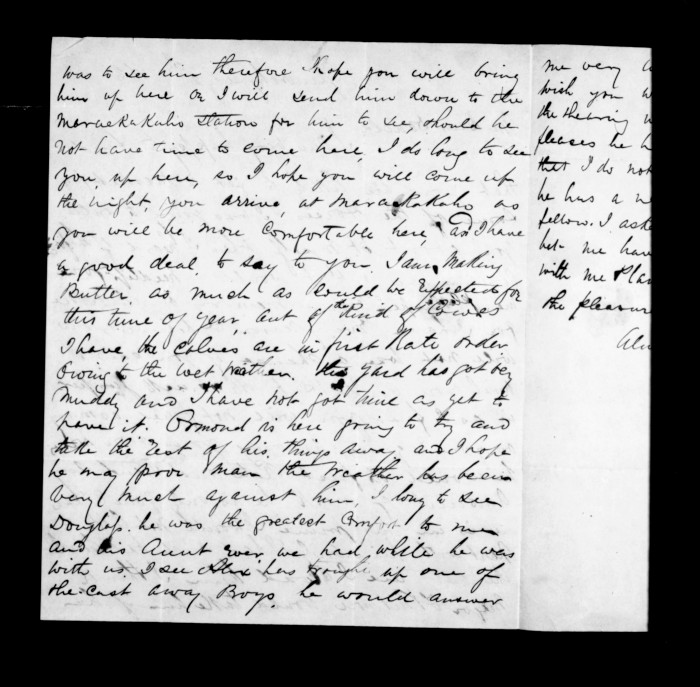 was to see him therefore I hope you will bring
him up here or I will send him down to the
Maraekakaho station for him to see, should he
not have time to come here, I do long to see
you, up here, so I hope you will come up
the night, you arrive, at Maraekakaho as
you will be more comfortable here, as I have
a good deal, to say to you, I am Making
Butter, as much as could be Expected for
this time of year, out of the Kind of Cows
I have, the calves are in first Rate order
Owing to the wet Weather. the yard has got very
Muddy and I have not got time as yet to
pave it. Ormond is here going to try and
take the Rest of his things away and I hope
he may poor man the weather has been
very much against him, I long to see
Douglass. he was the greatest Comfort to me
and his Aunt ever we had while he was
with us. I see Alex has up one of
the cast away Boys, he would answer
me very
wish you
the
pleases he
that I do not
he has a
fellow. I
me have
with me
the